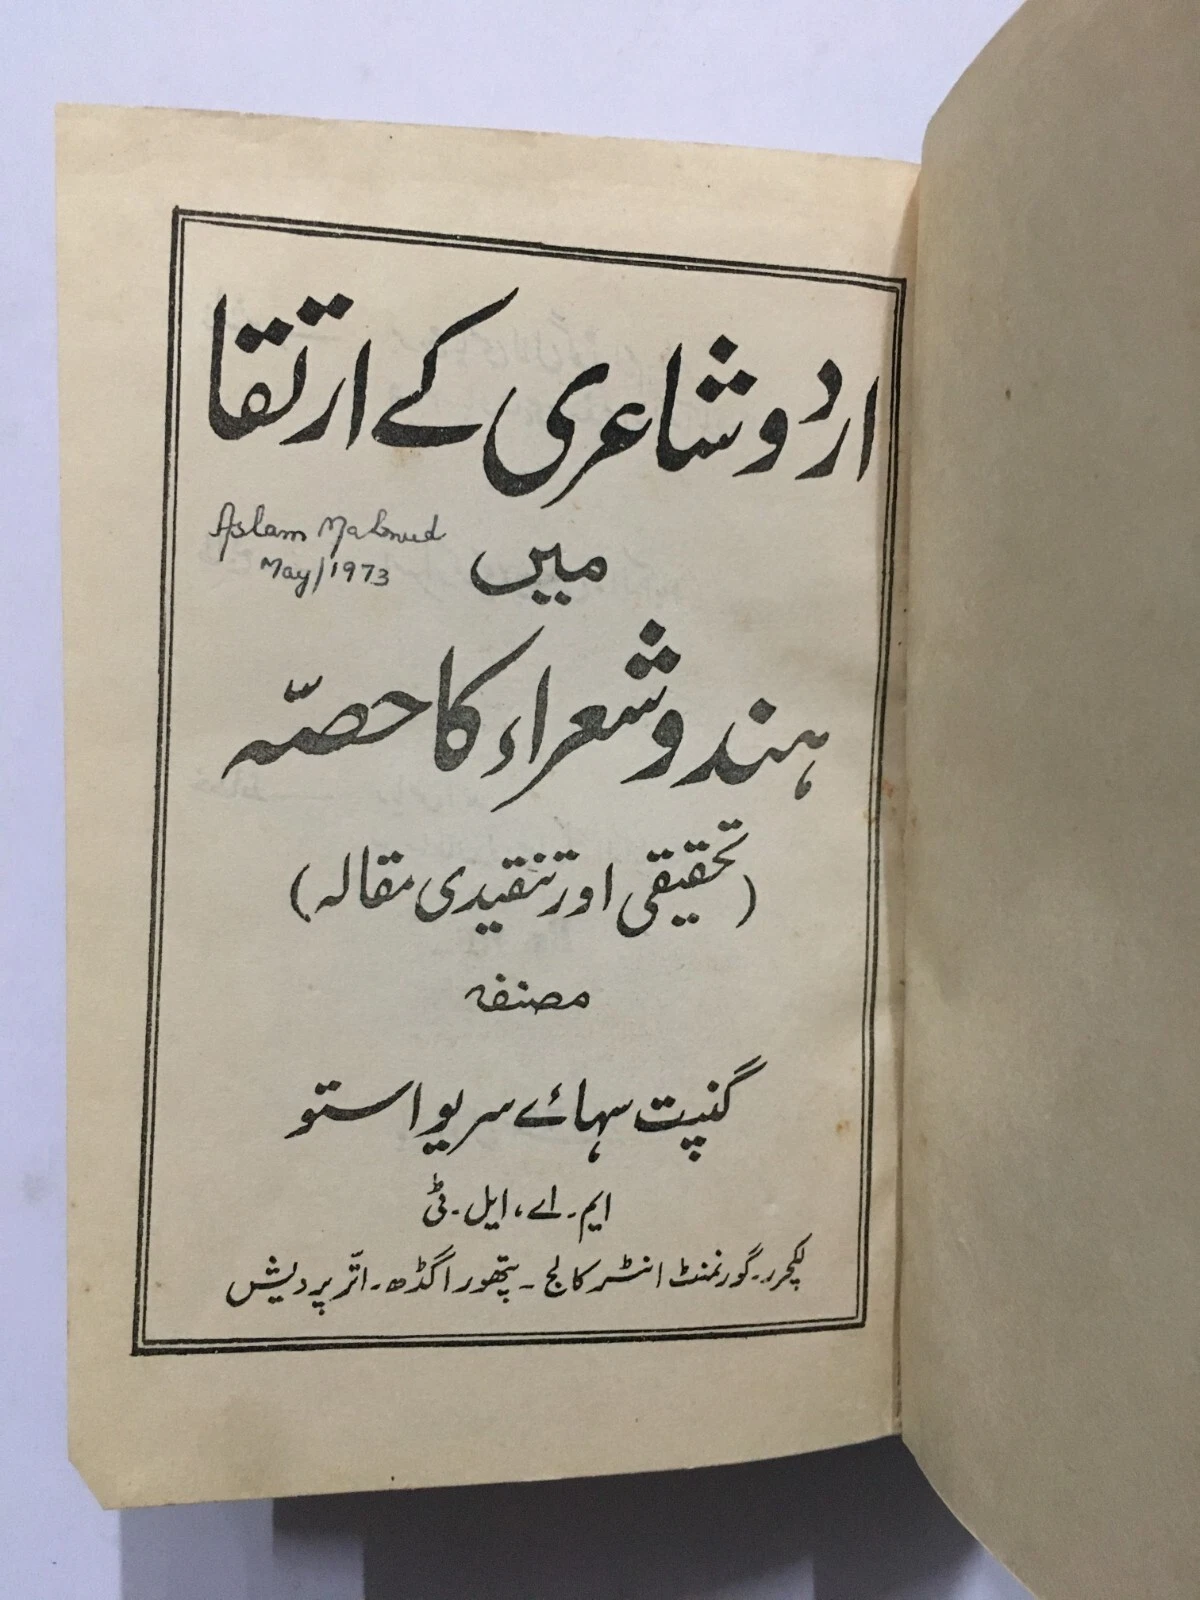 اردو شاعری کے ارتقا
میں
Aslam Mahmud
May/1973
ہندو شعراء کا حصّہ
(تحقیقی اور تنقیدی مقالہ)
مصنفہ
گنپت سہائے سریواستو
ایم۔اے، ایل۔ٹی
لکچرر۔گورنمنٹ انٹر کالج ۔ پتھوراگڈھ۔اتّر پردیش